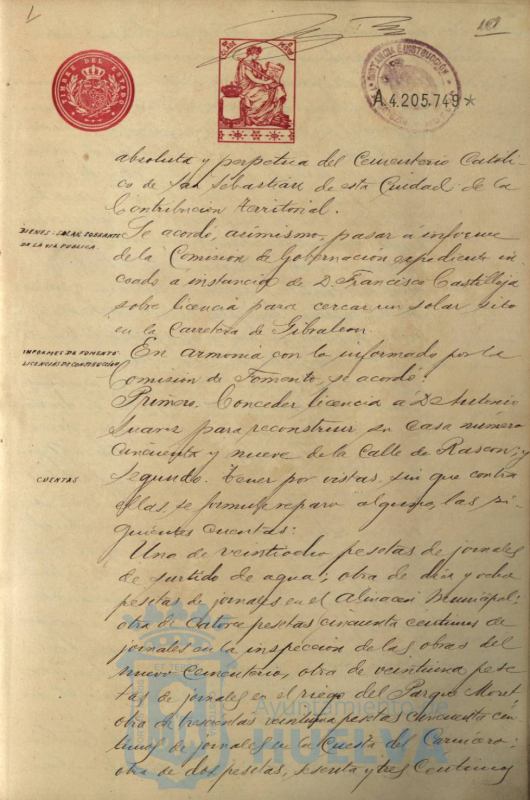 TIMBRE DEL ESTADO
A4.205.749*
absoluta y perpetua del Cementerio Católi-
co de San Sebastián de esta Ciudad de la
Contribución territorial.
BIENES-SOLAR SOBRANTE
DE LA VIA PUBLICA.
Se acordó, asimismo, pasar á informe
de la Comisión de Gobernación expediente in-
coado á instancia de D. Francisco Castilleja
sobre licencia para cercar un solar sito
en la Carretera de Gibraleon.
INFORMES DE FOMENTO
LICENCIAS DE CONSTRUCCIÓN
En armonía con lo informado por la
Comisión de Fomento, se acordó:
Primero. Conceder licencia á D. Antonio
Suarez para reconstruir su casa número
cincuenta y nueve de la calle de Rascon, y
CUENTAS
segundo. Tener por vistas, sin que contra
ellas, se formule reparo alguno, las si-
guientes cuentas:
Una de veintiocho pesetas de jornales
de surtido de agua; otra de diez y ocho
pesetas de jornales en el Almacén Municipal;
otra de catorce pesetas cincuenta centimos de
jornales en la inspección de las obras del
nuevo cementerio, otra de veintiuna pese-
tas de jornales en el riego del Parque Moret
otra de trescientas veintiuna pesetas cincuenta cén-
timos de jornales en la Cuesta del Carnicero;
otra de dos pesetas, sesenta y tres centimos
Ayuntamiento de
HUELVA